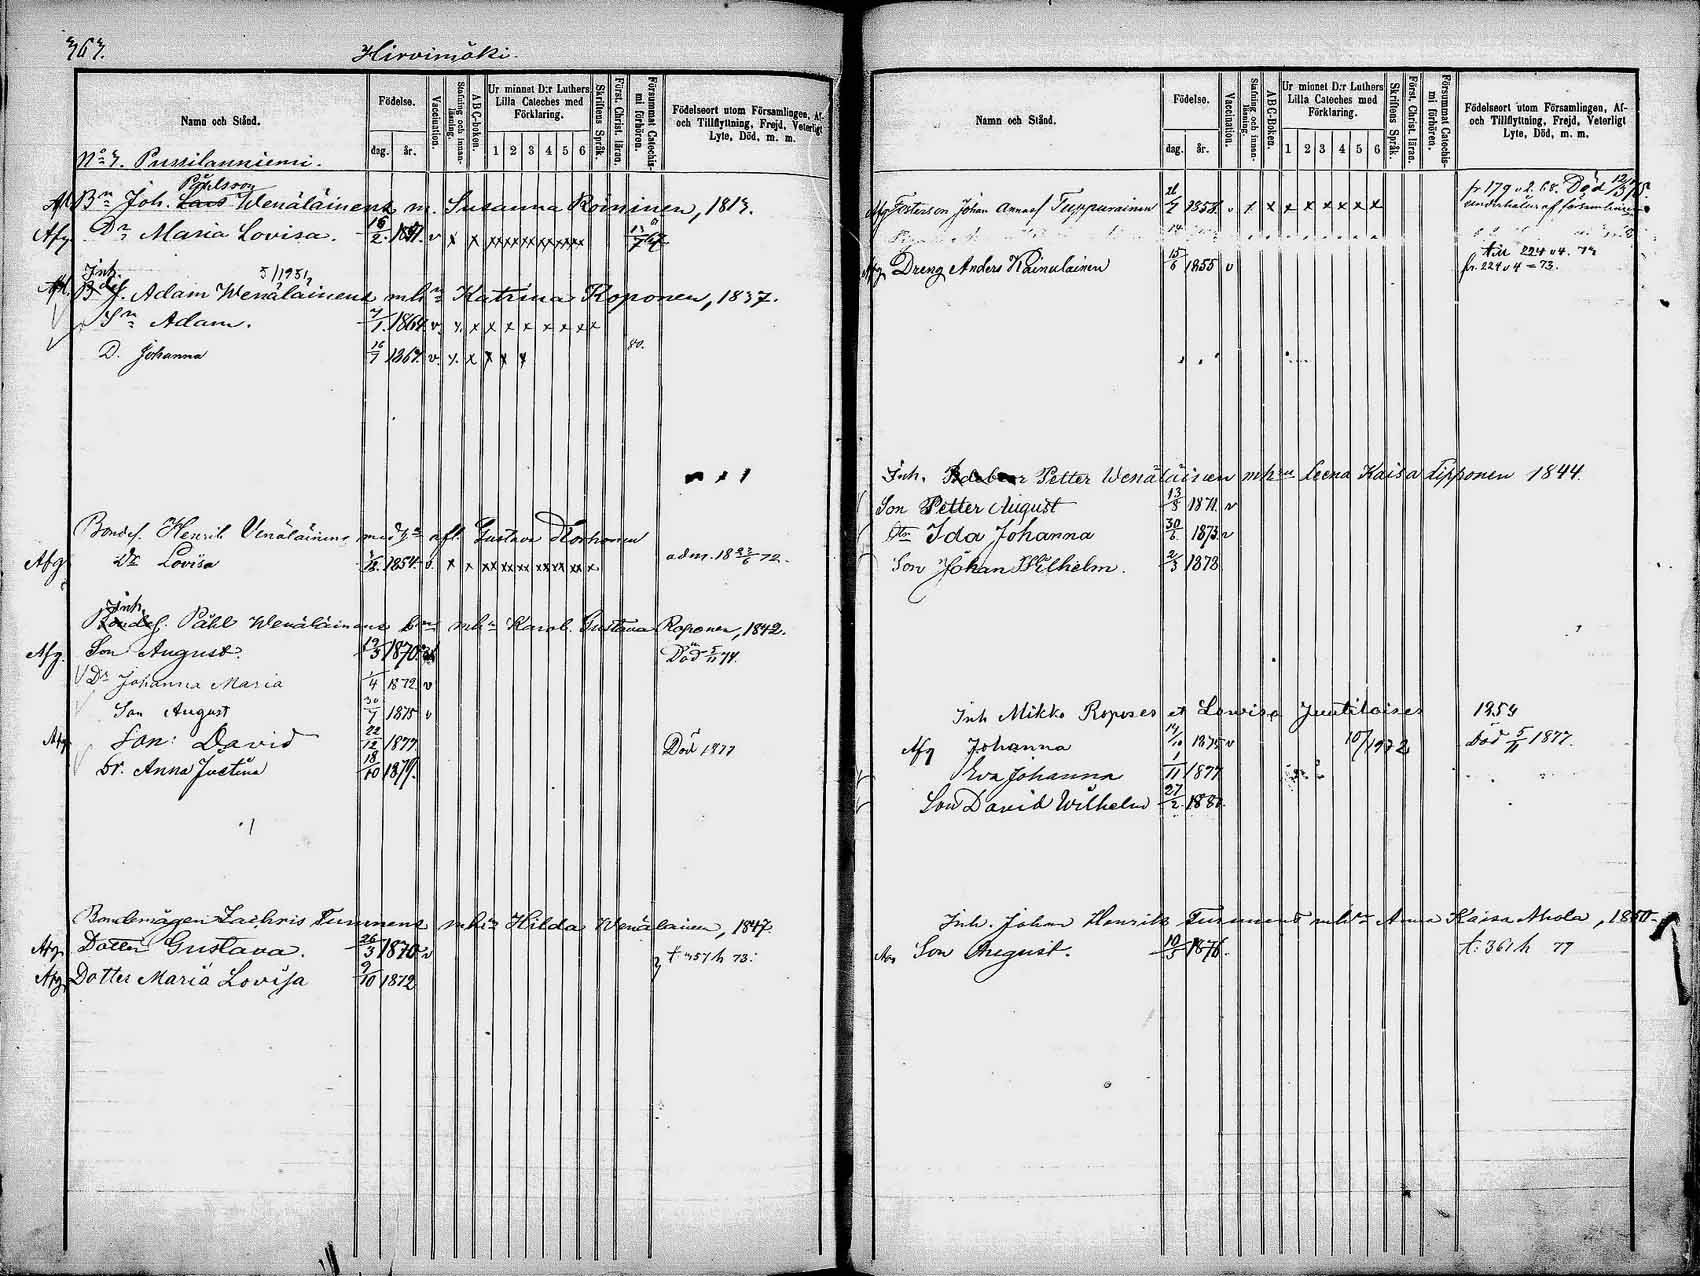 367.
Hirvimäki.
Namn och Stånd.
Födelse.
dag. år.
Vaccination.
Stafning och innanläsning.
ABC-boken.
Ur minnet D:r Luthers Lilla Cateches med Förklaring.
1 2 3 4 5 6
Skriftens Språk.
Först. Christ. läran.
Försummat Catechismi förhören.
Födelseort utom Församlingen, Af- och Tillflyttning, Frejd, Veterligt Lyte, Död, m. m.
No 7. Pussilanniemi.
Påhlsson
Bn Joh. Lars Wenäläinens m. Susanna Roininen, 1813.
Afg. Dr Maria Lovisa. 16/2. 1851. v x x xxxxxxxxxx
Inh.
Adam Wenäläinens mhn Katrina Koponen, 1837.
Sn Adam. 7/1. 1864. v. x x x x x x x x x
D. Johanna 16/7 1867. v. x. x x x x 80.
Bondes. Henrik Venäläinens med Gustava Korhonen
Afg. Dr Lovisa 1854. v. x x xx xx xx xx xx x adm. 18 23/6 72.
Inh.
Bondes. Påhl Wenäläinens mhn Karol. Gustava Koponen, 1842.
Afg. Son August. 19/3 1870. Död 5/11 74.
Dr Johanna Maria 1/4 1872 v
Son August 30/7 1875 v
Afg. Son: David 22/12 1877 Död 1877
Dr. Anna Justina 18/10 1879.
Bondemågen Zachris Tummens mhn Hilda Wenäläinen, 1847.
Afg. Dotter Gustava. 26/3 1870 v t. 357 h 73.
Afg. Dotter Maria Lovisa 9/10 1872
Namn och Stånd.
Födelse.
dag. år.
Vaccination.
Stafning och innanläsning.
ABC-Boken.
Ur minnet D:r Luthers Lilla Cateches med Förklaring.
1 2 3 4 5 6
Skriftens Språk.
Först. Christ. läran.
Försummat Catechismi förhören.
Födelseort utom Församlingen, Af- och Tillflyttning, Frejd, Veterligt Lyte, Död, m. m.
fr 179 v 2. 68. Död
Afg Fosterson Johan Annas Tuppurainen 1858. v x x x x x x x x underhålles af församlingen
till 224 v 4. 73
Afg Dreng Anders Kainulainen 15/6 1855 v fr. 224 v 4 - 73.
Inh. Petter Wenäläinen mhru Leena Kaisa Lipponen 1844.
Son Petter August 13/8 1871. v
Dtr Ida Johanna 30/6 1873. v
Son Johan Wilhelm. 2/3 1878
Inh Mikko Koposes et Lowisa Juutilaises 1854
Afg Johanna 14/10 1875 v 10/1972 Död 5/11 1877.
Eva Johanna 1/11 1877
Son David Wilhelm 27/2 1880.
Inh. Johan Henrik Tummens mhru Anna Kaisa Ahola, 1850
Son August. 10/5 1876. t: 361 h 77